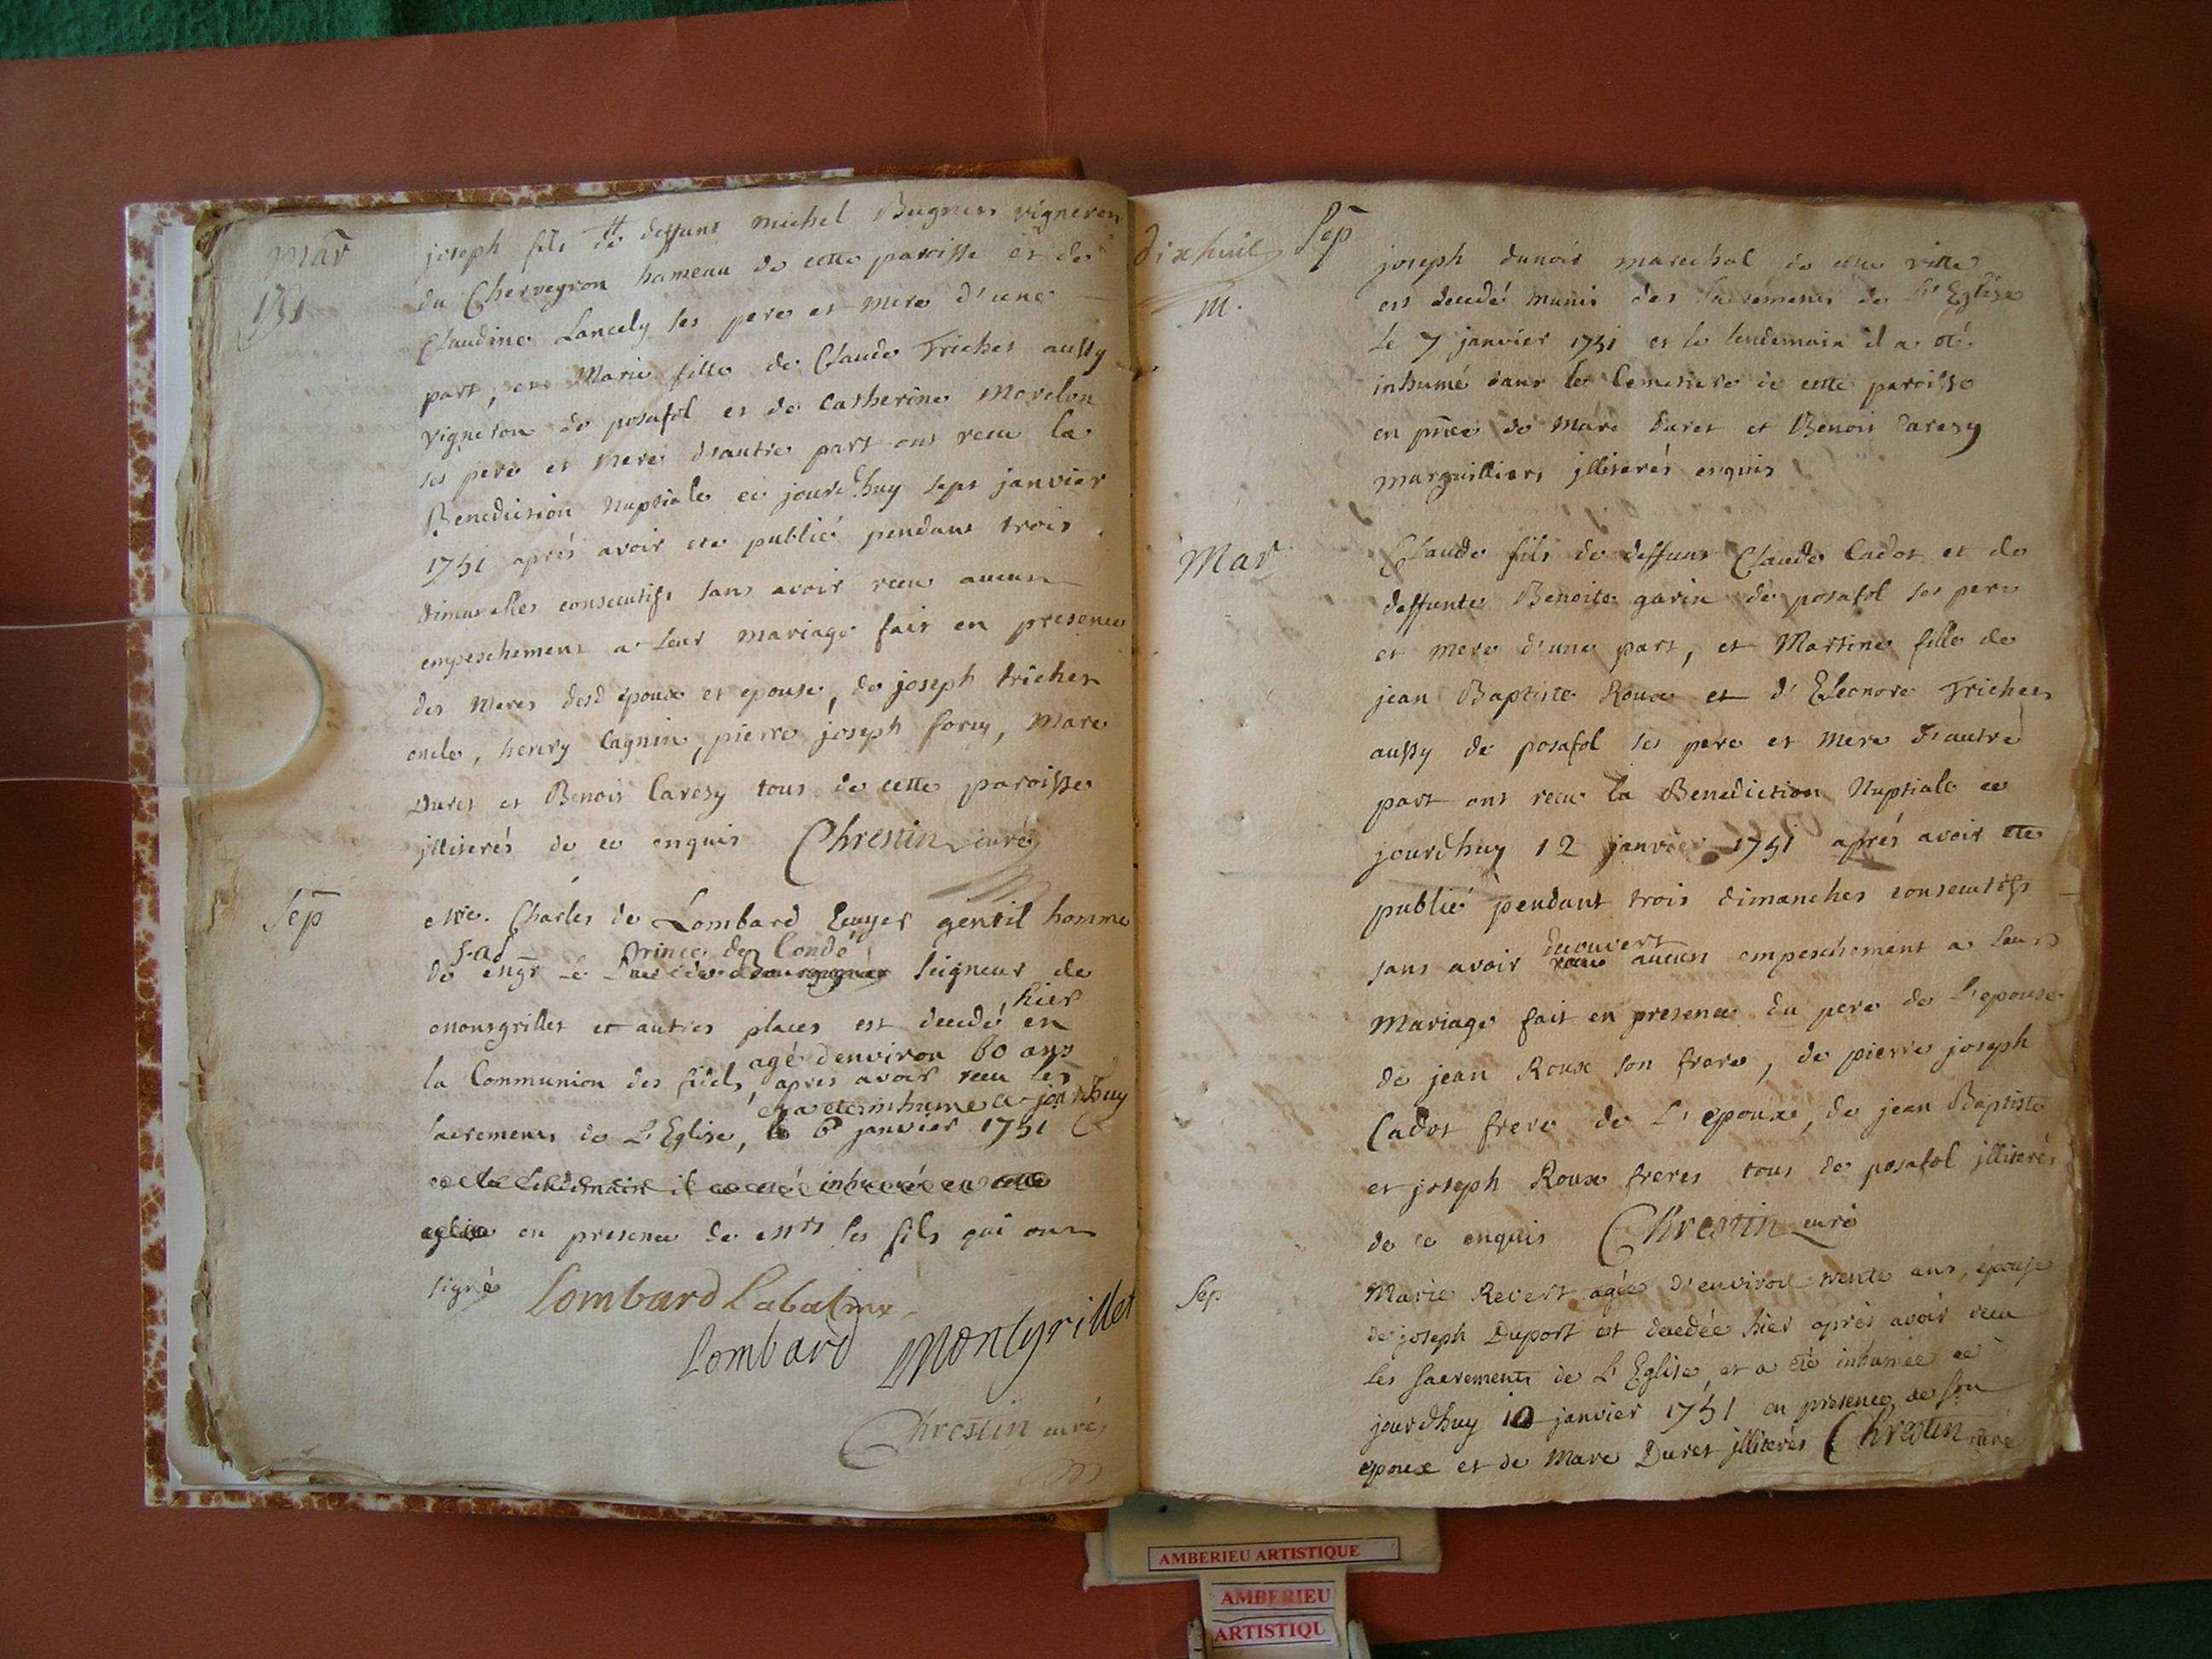 Mar
1751
joseph fils de deffunt michel Bugnier vigneron
du Cherveyron hameau de cette paroisse et de
Claudine Lancely ses pere et mere d'une
part, et Marie fille de Claude Trichet aussy
vigneron de posafol et de Catherine Morelon
ses pere et mere d'autre part ont receu la
Benediction Nuptiale ce jourdhuy sept janvier
1751 aprés avoir ete publié pendant trois
dimanches consecutifs sans avoir receu aucun
empeschement a leur mariage fait en presence
des meres desd epoux et epouse, de joseph trichet
oncle, henry Cagnin, pierre joseph , Marc
Duret et Benoit Caresy tous de cette paroisse
jlliterés de ce enquis Chrestin curé
Sep
Mre. Charles de Lombard Ecuyer gentil homme
S.A.S. Prince de Condé
de Mgr le Seigneur de
hier
Montgrillet et autres places est decedé en
agé denviron 60 ans
la Communion des fidels, apres avoir receu les
et a ete inhumé ce jourdhuy
sacrements de L'Eglise, le 6 janvier 1751
et le lendemain il a eté inhumé en cette
eglise en presence de Mrs ses fils qui ont
signé Lombard Labalme
Lombard Montgrillet
Chrestin curé
dixhuit
m.
Sep
joseph dunoir marechal de cette ville
est decedé munis des sacrements de L'Eglise
le 7 janvier 1751 et le lendemain il a eté
inhumé dans le Cemetiere de cette paroisse
en pnce de Marc Duret et Benoit Caresy
marguilliers jlliterés enquis
Mar
Claude fils de deffunt Claude Cadot et de
deffunte Benoite garin de posafol ses pere
et mere d'une part, et Martine fille de
jean Baptiste Roux et d'Eleonore Trichet
aussy de posafol ses pere et mere d'autre
part ont receu la Benediction Nuptiale ce
jourdhuy 12 janvier 1751 aprés avoir ete
publié pendant trois dimanches consecutifs
decouvert
sans avoir receu aucun empeschement a leur
Mariage fait en presence du pere de L'epouse
de jean Roux son frere, de pierre joseph
Cadot frere de L'epoux, de jean Baptiste
et joseph Roux freres tous de posafol jlliterés
de ce enquis Chrestin curé
Sep
Marie Revert agée d'environ trente ans, épouse
de joseph Duport est decedée hier aprés avoir receu
les sacrements de L'Eglise, et a eté inhumée ce
jourdhuy 10 janvier 1751 en presence de son
epoux et de Marc Duret jlliterés Chrestin curé
AMBERIEU ARTISTIQUE
AMBERIEU
ARTISTIQU